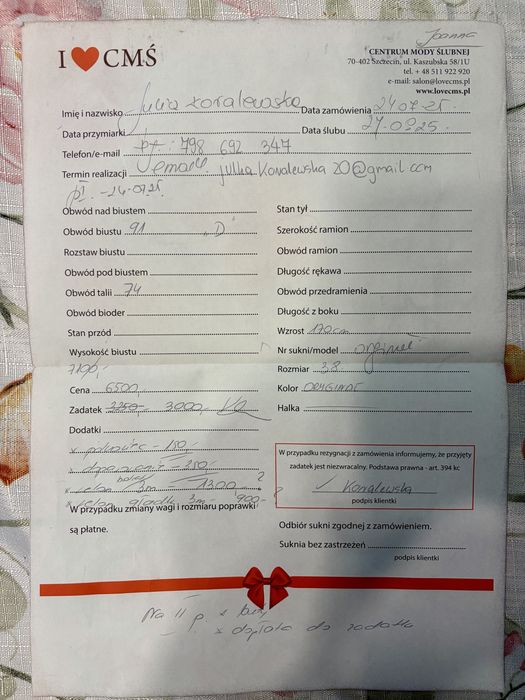 Joanna
I ❤ CMŚ
CENTRUM MODY ŚLUBNEJ
70-402 Szczecin, ul. Kaszubska 58/1U
tel. + 48 511 922 920
e-mail: salon@lovecms.pl
www.lovecms.pl
Imię i nazwisko Julia Kowalewska Data zamówienia 24.07.25r.
Data przymiarki Data ślubu 27.09.25r.
Telefon/e-mail 798 692 347
Termin realizacji julkakowalewska20@gmail.com
pt. -24.07.25
Obwód nad biustem
Obwód biustu 91 "D"
Rozstaw biustu
Obwód pod biustem
Obwód talii 74
Obwód bioder
Stan przód
Wysokość biustu
7190,-
Cena 6500,-
Zadatek 3250,- 3000,-
Dodatki
x pokrowiec - 150,-
x - 350,-
x welon 3m 1300,- ?
x welon gładki 3m 900,- ?
W przypadku zmiany wagi i rozmiaru poprawki
są płatne.
Stan tył
Szerokość ramion
Obwód ramion
Długość rękawa
Obwód przedramienia
Długość z boku
Wzrost 170cm
Nr sukni/model
Rozmiar 38
Kolor ORYGINAŁ
Halka
W przypadku rezygnacji z zamówienia informujemy, że przyjęty
zadatek jest niezwracalny. Podstawa prawna - art. 394 kc
Kowalewska
podpis klientki
Odbiór sukni zgodnej z zamówieniem.
Suknia bez zastrzeżeń
podpis klientki
Na II p. x buty
x dopłata do zadatku